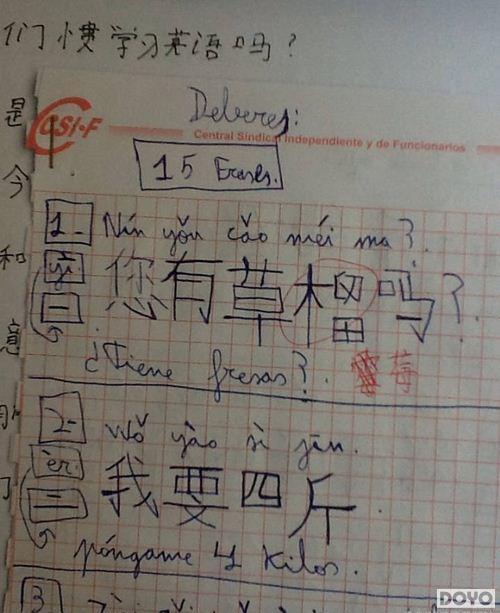 们惯学习英语吗?
是
今
和
意
CSI·F
Deberes:
Central Sindical Independiente y de Funcionarios
15 Frases.
1- Nín yǒu cǎo méi ma?
yī 您有草 吗?
一
¿Tiene fresas? 莓
2- Wǒ yào sì jīn.
èr 我要四斤
二
póngame 4 Kilos.
3
DOYO